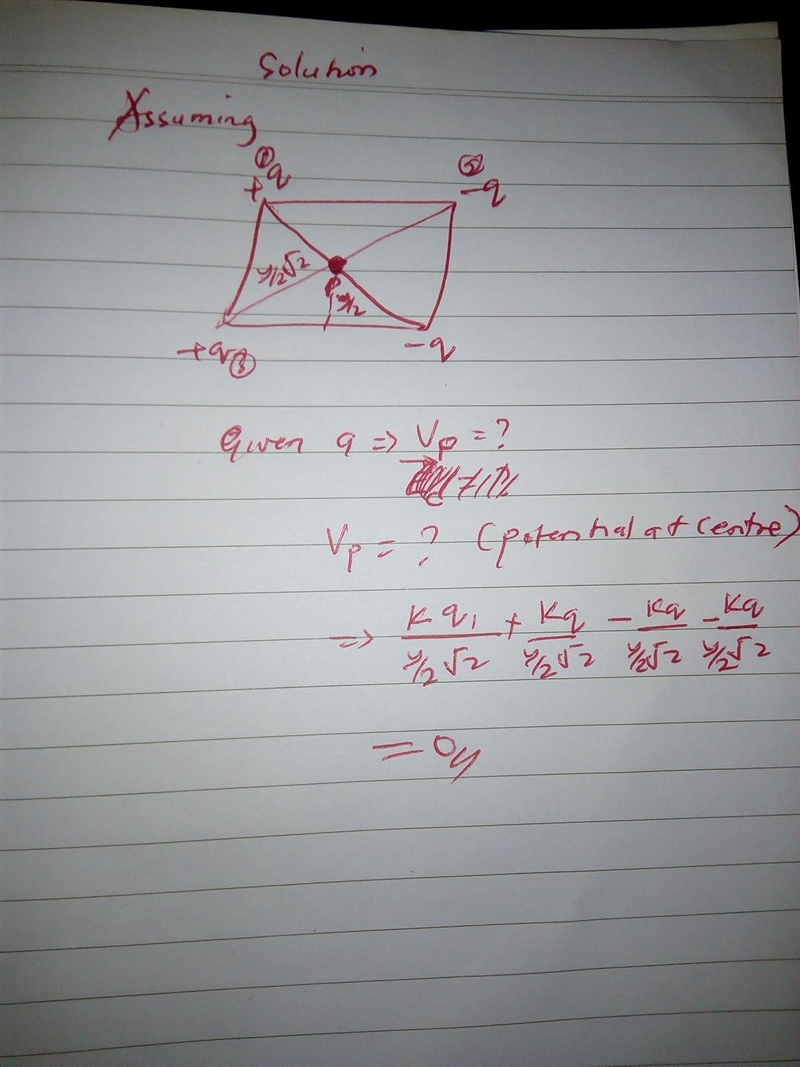 Solution
Assuming
① ②
+q -q
y/2√2
P y/2
+q③ -q
Given q => Vp = ?
Vp = ? (potential at centre)
=> K q₁ / y/2 √2 + Kq / y/2 √2 - Kq / y/2 √2 - Kq / y/2 √2
= 0//